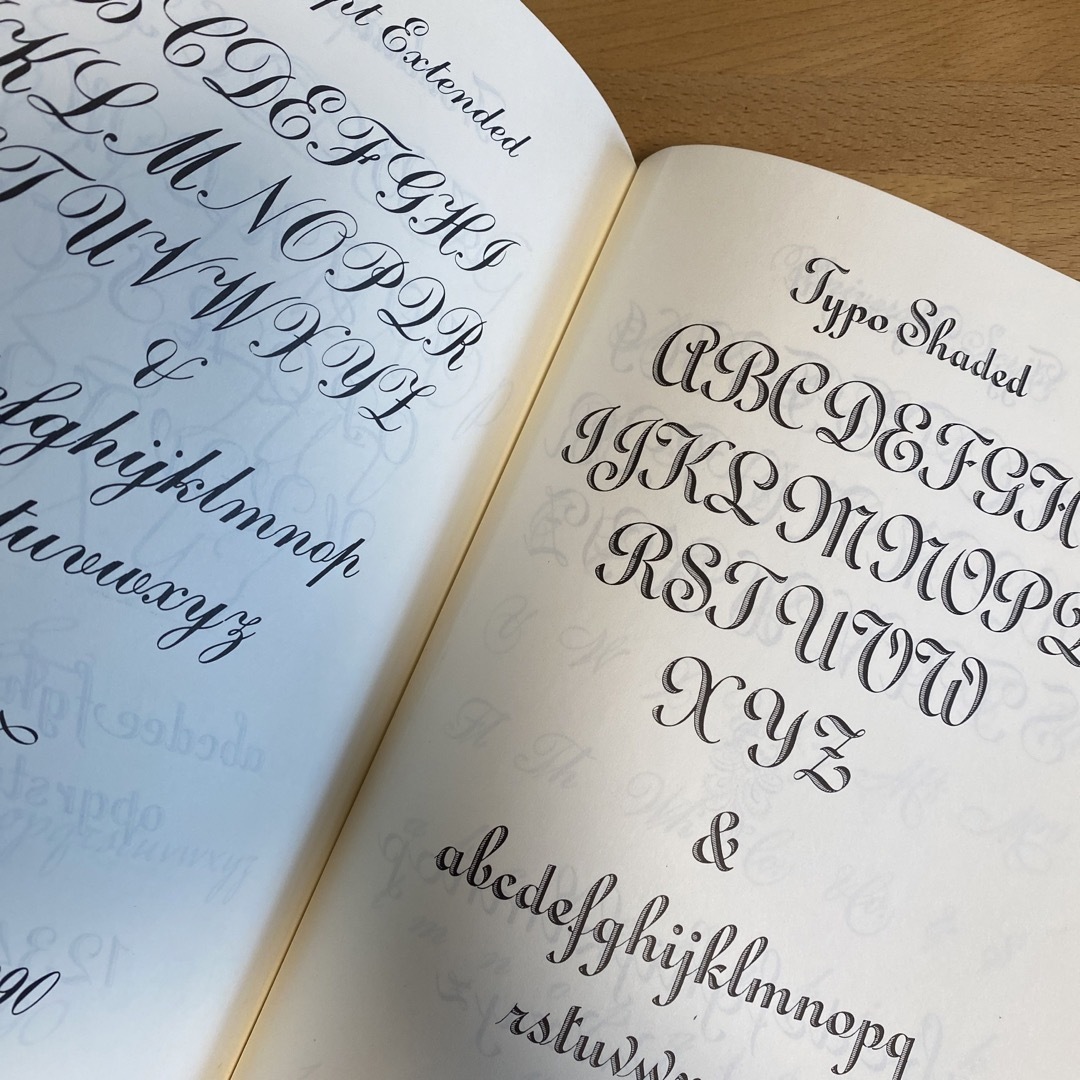 pt Extended
B C D E F G H I
K L M N O P Q R
T U V W X Y Z
&
efghijklmnop
tuvwxyz
90
Typo Shaded
A B C D E F G H
I J K L M N O P Q
R S T U V W
X Y Z
&
abcdefghijklmnopq
rstuvw